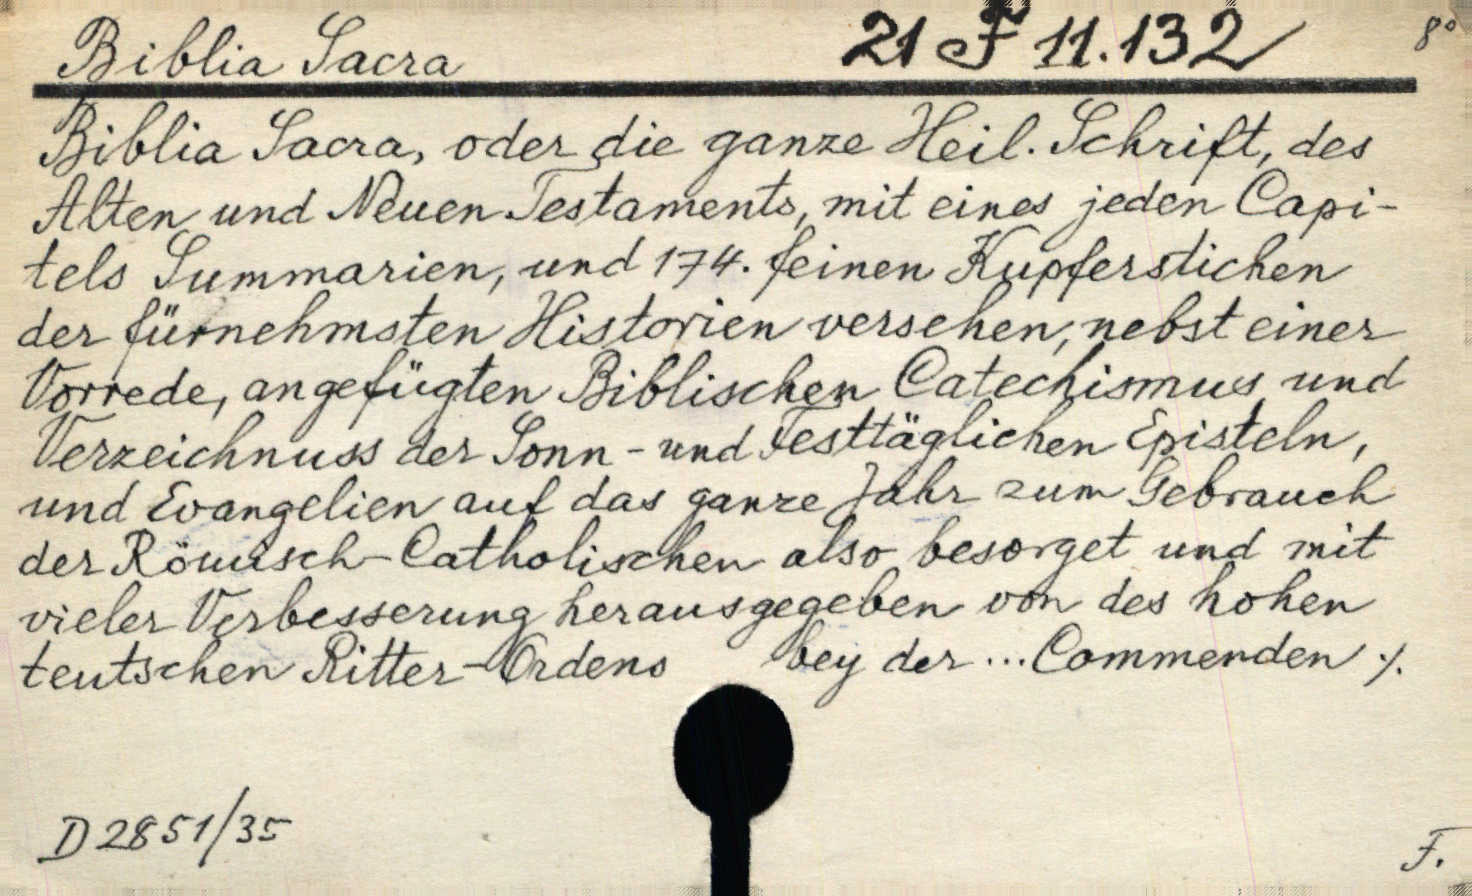 Biblia Sacra 21 F 11.132 8°
Biblia Sacra, oder die ganze Heil. Schrift, des
Alten und Neuen Testaments, mit eines jeden Capi-
tels Summarien, und 174. feinen Kupferstichen
der fürnehmsten Historien versehen, nebst einer
Vorrede, angefügten Biblischen Catechismus und
Verzeichnuss der Sonn- und Festtäglichen Episteln,
und Evangelien auf das ganze Jahr zum Gebrauch
der Römisch-Catholischen also besorget und mit
vieler Verbesserung herausgegeben von des hohen
teutschen Ritter-Ordens bey der ... Commenden ·/.
D 2851/35
F.